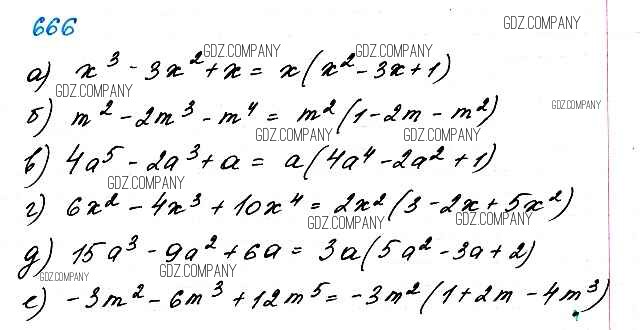 666
GDZ.COMPANY
GDZ.COMPANY GDZ.COMPANY
а) x³ - 3x² + x = x(x² - 3x + 1)
GDZ.COMPANY GDZ.COMPANY
б) m² - 2m³ - m⁴ = m²(1 - 2m - m²)
GDZ.COMPANY GDZ.COMPANY
в) 4a⁵ - 2a³ + a = a(4a⁴ - 2a² + 1)
GDZ.COMPANY
г) 6x² - 4x³ + 10x⁴ = 2x²(3 - 2x + 5x²)
GDZ.COMPANY GDZ.COMPANY
GDZ.COMPANY
д) 15a³ - 9a² + 6a = 3a(5a² - 3a + 2)
GDZ.COMPANY GDZ.COMPANY
е) -3m² - 6m³ + 12m⁵ = -3m²(1 + 2m - 4m³)
GDZ.COMPANY